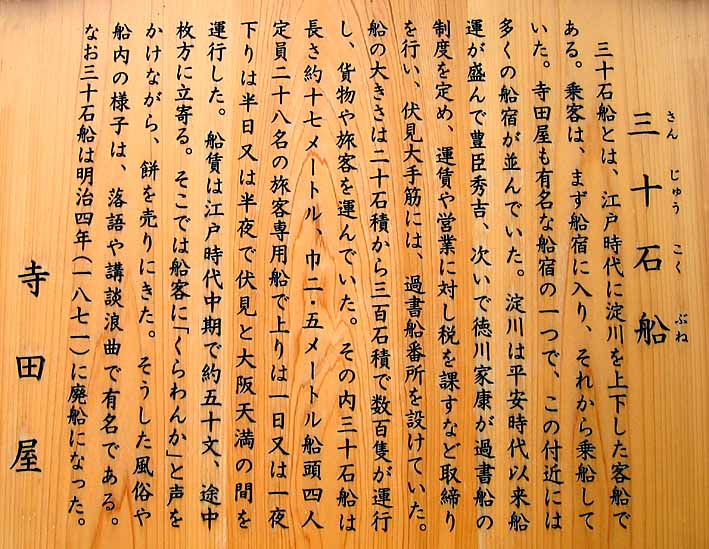 さん じゅう こく ぶね
三十石船
三十石船とは、江戸時代に淀川を上下した客船で
ある。乗客は、まず船宿に入り、それから乗船して
いた。寺田屋も有名な船宿の一つで、この付近には
多くの船宿が並んでいた。淀川は平安時代以来船
運が盛んで豊臣秀吉、次いで徳川家康が過書船の
制度を定め、運賃や営業に対し税を課すなど取締り
を行い、伏見大手筋には、過書船番所を設けていた。
船の大きさは二十石積から三百石積で数百隻が運行
し、貨物や旅客を運んでいた。その内三十石船は
長さ約十七メートル、巾二・五メートル船頭四人
定員二十八名の旅客専用船で上りは一日又は一夜
下りは半日又は半夜で伏見と大阪天満の間を
運行した。船賃は江戸時代中期で約五十文、途中
枚方に立寄る。そこでは船客に「くらわんか」と声を
かけながら、餅を売りにきた。そうした風俗や
船内の様子は、落語や講談浪曲で有名である。
なお三十石船は明治四年(一八七一)に廃船になった。
寺田屋